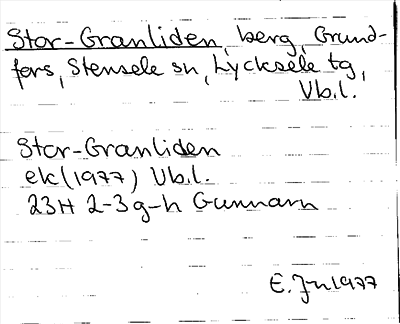 Stor-Granliden, berg, Grund-
fors, Stensele sn, Lycksele tg,
Vb.l.
Stor-Granliden
ek (1977) Vb.l.
23H 2-3g-h Gunnarn
E. Jn 1977